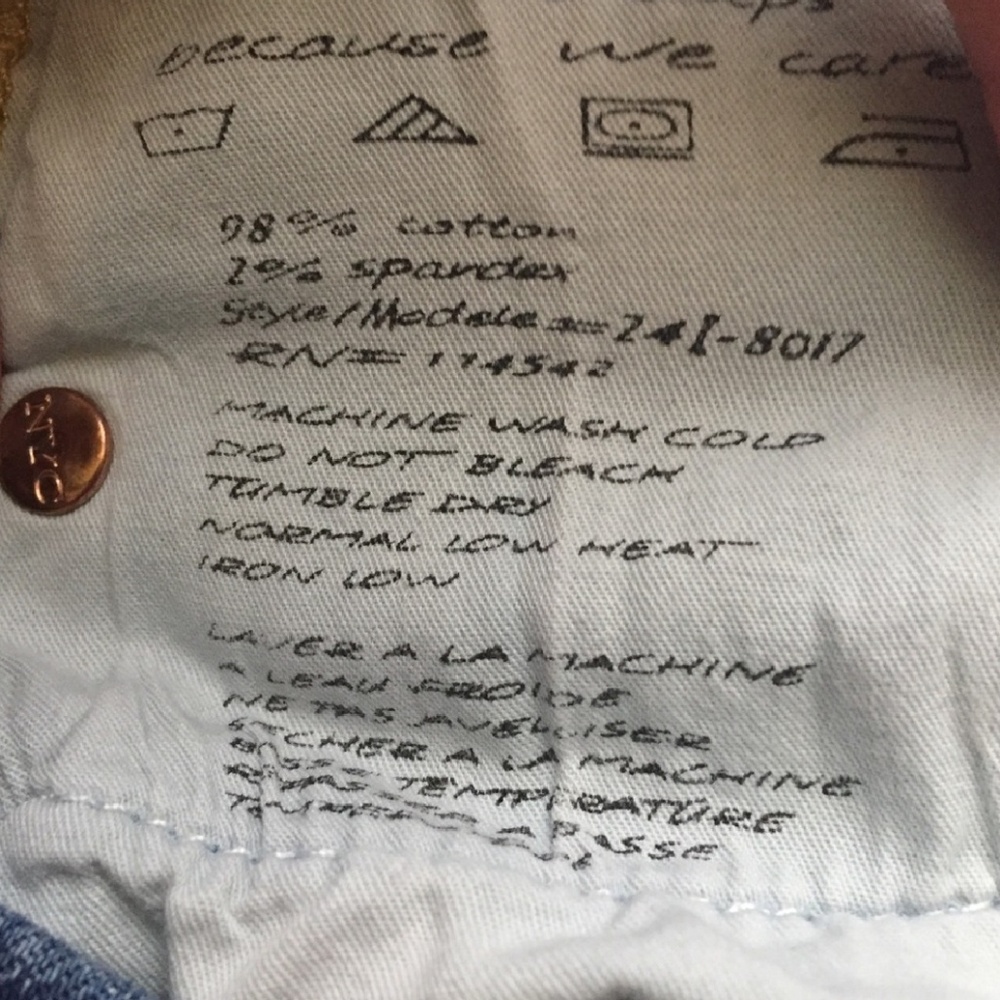 because we care
98% cotton
2% spandex
Style/Modele = 241-8017
RN= 114542
MACHINE WASH COLD
DO NOT BLEACH
TUMBLE DRY
NORMAL LOW HEAT
IRON LOW
LAVER A LA MACHINE
A LEAU FROIDE
NE PAS
SECHER A LA MACHINE
TEMPERATURE